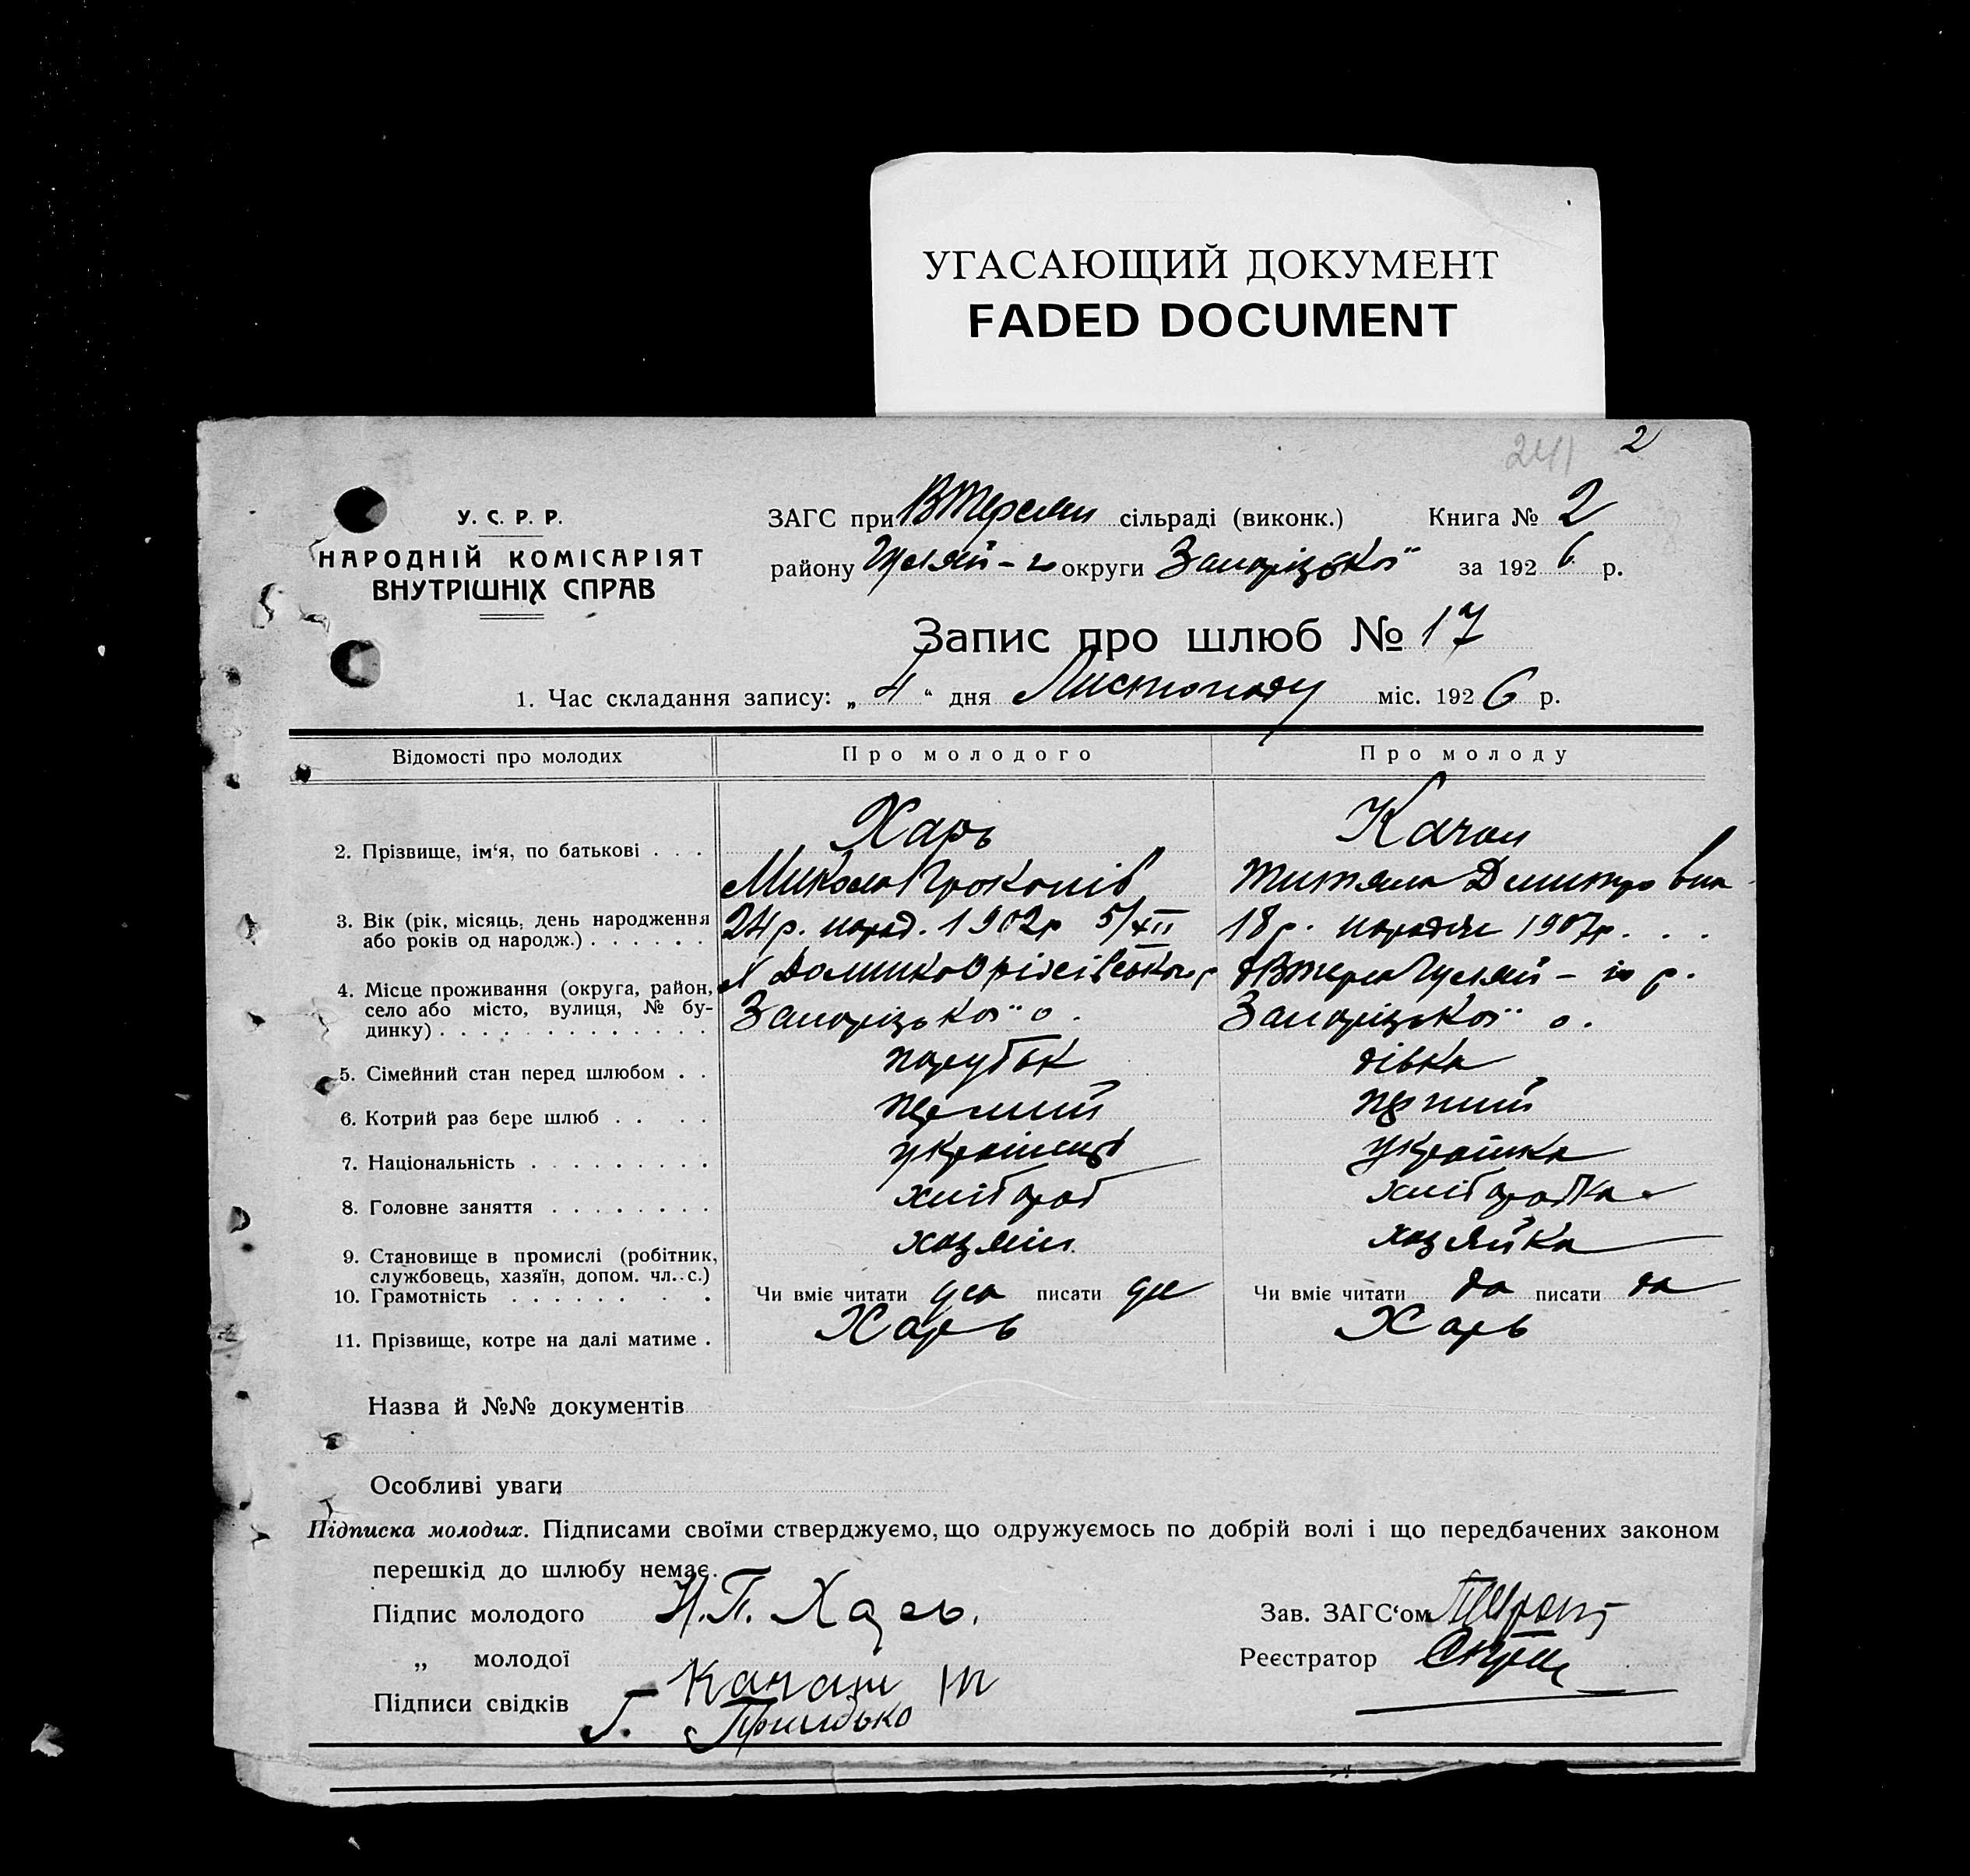 УГАСАЮЩИЙ ДОКУМЕНТ
FADED DOCUMENT
241 2
У. С. Р. Р.
НАРОДНІЙ КОМІСАРІЯТ
ВНУТРІШНІХ СПРАВ
ЗАГС при сільраді (виконк.) Книга № 2
району округи Запорізької за 1926 р.
Запис про шлюб № 17
1. Час складання запису: „4“ дня Листопаду міс. 1926 р.
Відомості про молодих Про молодого Про молоду
2. Прізвище, ім‘я, по батькові . . . Харь
Микола Прокопів Дмитровна
3. Вік (рік, місяць, день народження або років од народж.) . . . . . . 24 р. народ. 1902 р 5/XII 18 р. 1907 р. . .
4. Місце проживання (округа, район, село або місто, вулиця, № будинку) . . . . . . . . . . . . . Запорізької о. Запорізької о.
5. Сімейний стан перед шлюбом . . парубок дівка
6. Котрий раз бере шлюб . . . . перший
7. Національність . . . . . . . . . українець українка
8. Головне заняття . . . . . . . . хлібороб хліборобка
9. Становище в промислі (робітник, службовець, хазяїн, допом. чл. с.) хозяїн хозяйка
10. Грамотність . . . . . . . . Чи вміє читати писати Чи вміє читати да писати да
11. Прізвище, котре на далі матиме . Харь Харь
Назва й №№ документів
Особливі уваги
Підписка молодих. Підписами своїми стверджуємо, що одружуємось по добрій волі і що передбачених законом
перешкід до шлюбу немає.
Підпис молодого Н.П. Харь. Зав. ЗАГС‘ом
„ молодої Реєстратор
Підписи свідків Г.